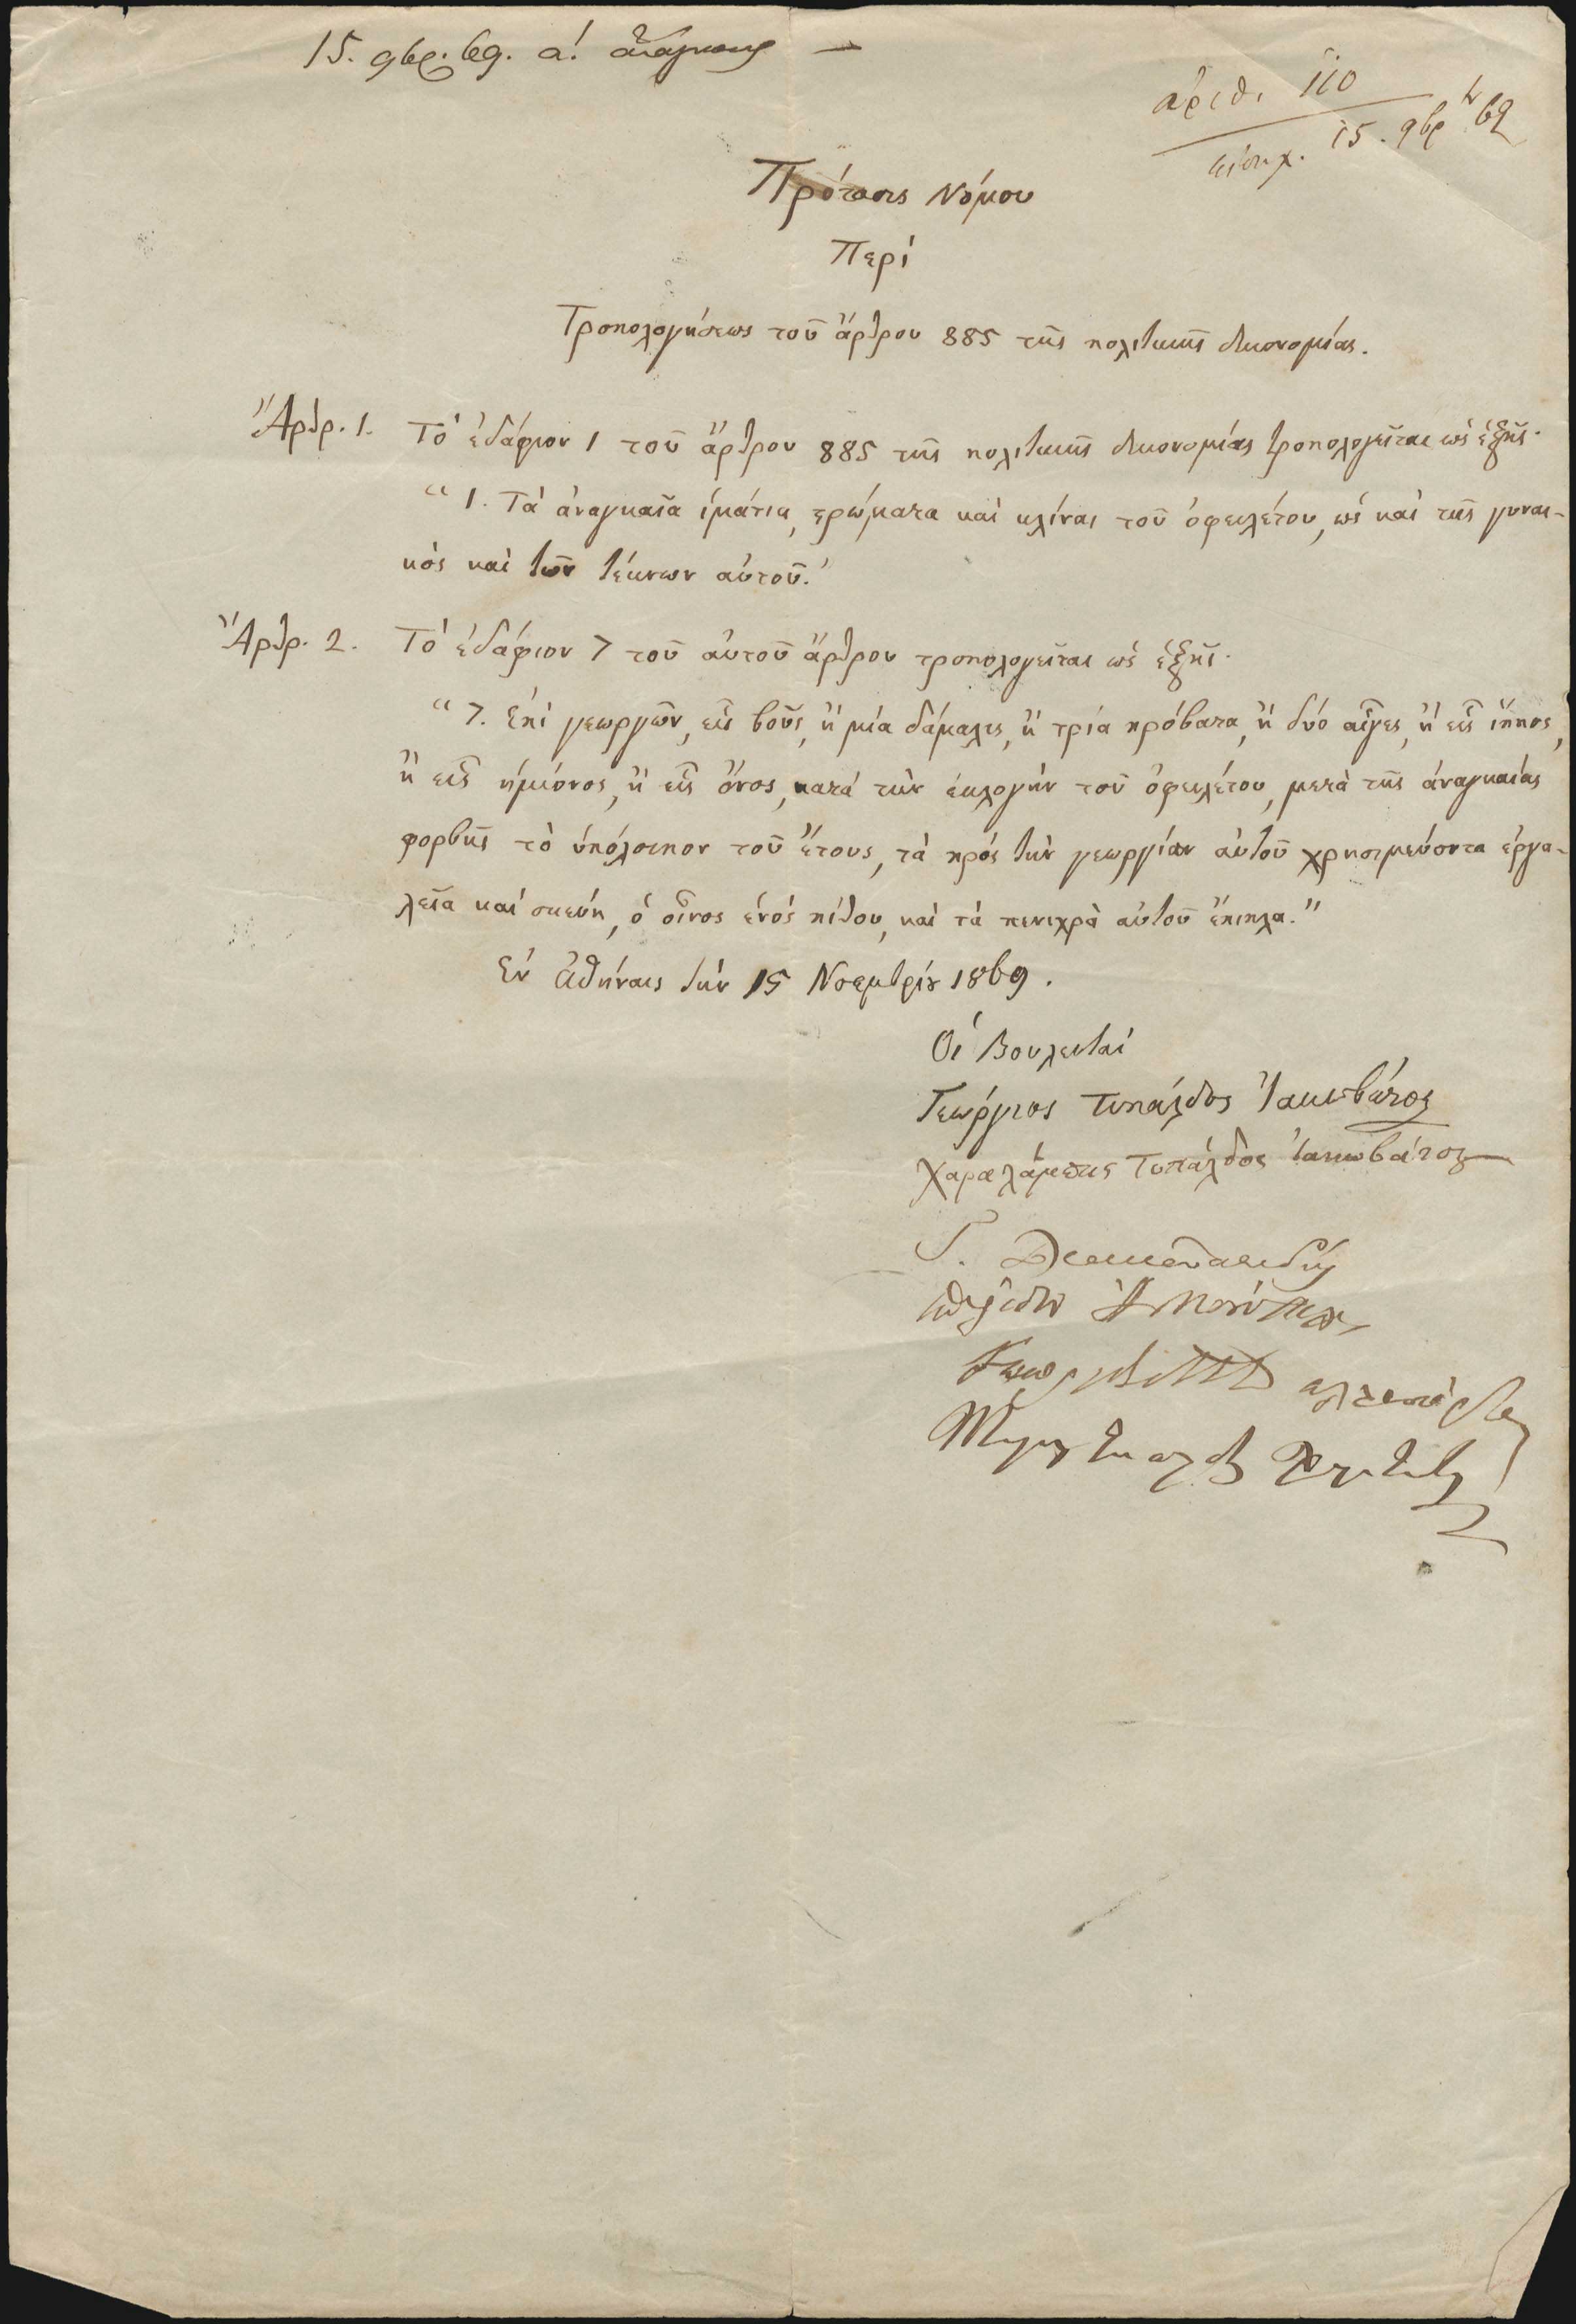 15. 9βρ. 69. α! ἀνάγνωσις —
ἀριθ. 110
εἰσηχ. 15. 9βρ 69
Πρότασις Νόμου
Περί
Τροπολογήσεως τοῦ ἄρθρου 885 τῆς πολιτικῆς δικονομίας.
Ἄρθρ. 1. Τό ἐδάφιον 1 τοῦ ἄρθρου 885 τῆς πολιτικῆς δικονομίας τροπολογεῖται ὡς ἑξῆς·
“ 1. Τά ἀναγκαῖα ἱμάτια, στρώματα καί κλίναι τοῦ ὀφειλέτου, ὡς καί τῆς γυναι-
κός καί τῶν τέκνων αὐτοῦ.”
Ἄρθρ. 2. Τό ἐδάφιον 7 τοῦ αὐτοῦ ἄρθρου τροπολογεῖται ὡς ἑξῆς·
“ 7. Ἐπί γεωργῶν, εἷς βοῦς, ἤ μία δάμαλις, ἤ τρία πρόβατα, ἤ δύο αἶγες, ἤ εἷς ἵππος,
ἤ εἷς ἡμίονος, ἤ εἷς ὄνος, κατά τήν ἐκλογήν τοῦ ὀφειλέτου, μετά τῆς ἀναγκαίας
φορβῆς τό ὑπόλοιπον τοῦ ἔτους, τά πρός τήν γεωργίαν αὐτοῦ χρησιμεύοντα ἐργα-
λεῖα καί σκεύη, ὁ οἶνος ἑνός πίθου, καί τά πενιχρά αὐτοῦ ἔπιπλα.”
Ἐν Ἀθήναις τήν 15 Νοεμβρίου 1869.
Οἱ Βουλευταί
Γεώργιος Τυπάλδος Ἰακωβάτος
Χαραλάμπης Τυπάλδος Ἰακωβάτος
Γ.